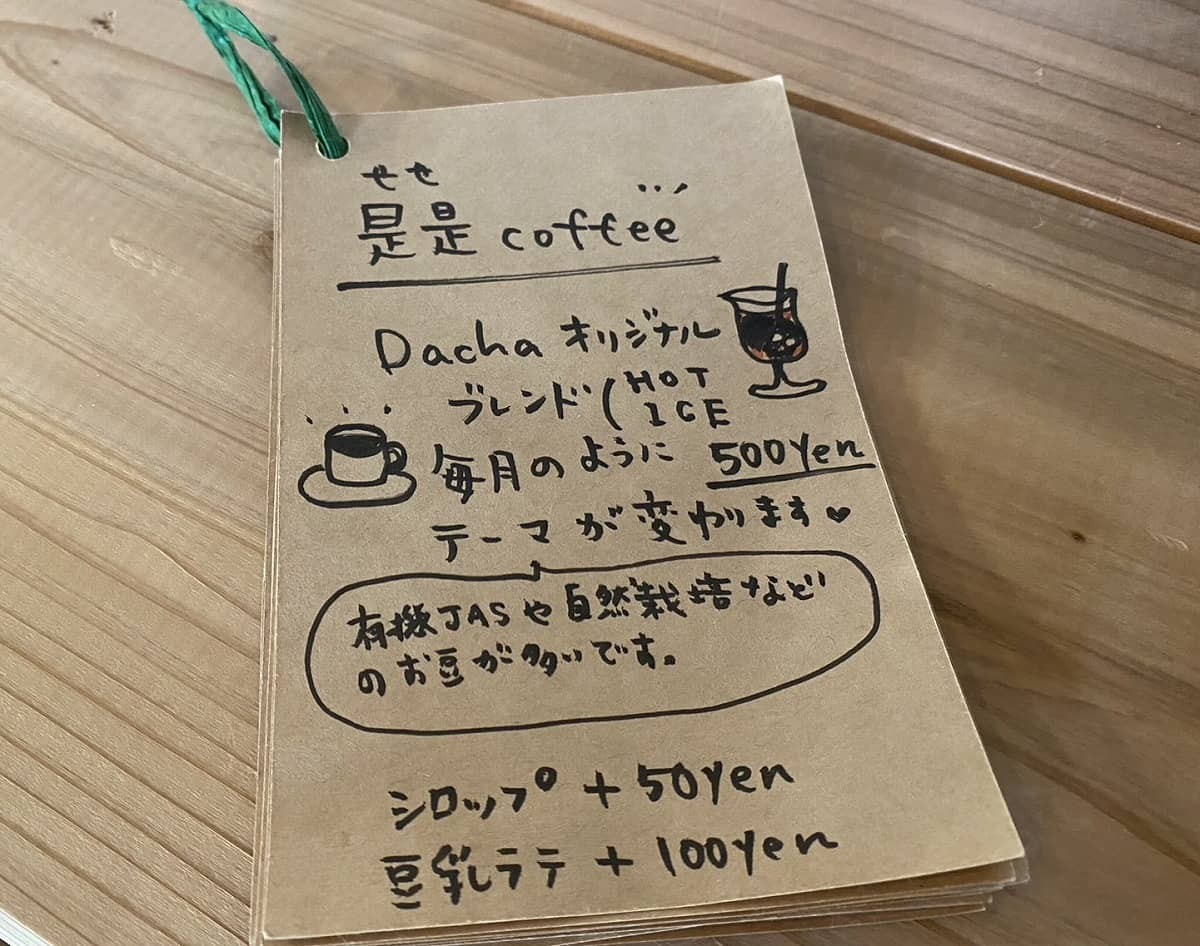 ぜぜ
是是 coffee
Dacha オリジナル
ブレンド(HOT
ICE
毎月のように 500yen
テーマが変わります♥
有機JASや自然栽培など
のお豆が多いです。
シロップ + 50yen
豆乳ラテ + 100yen